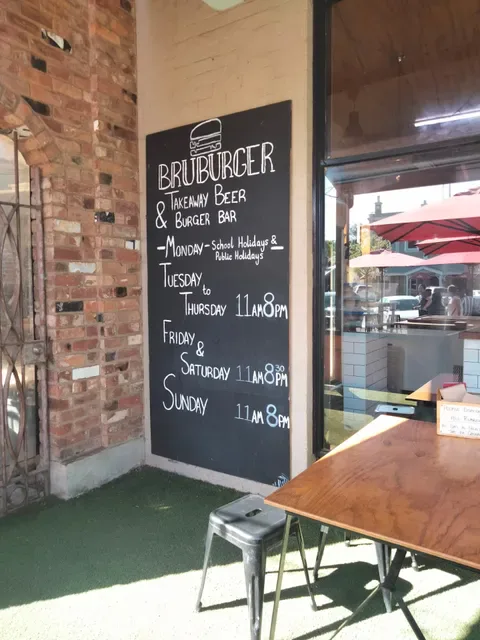 BRUBURGER
& TAKEAWAY BEER
BURGER BAR
- MONDAY - School Holidays & -
Public Holidays
TUESDAY
to
THURSDAY 11AM 8PM
FRIDAY
&
SATURDAY 11AM 8 30 PM
SUNDAY 11AM 8PM